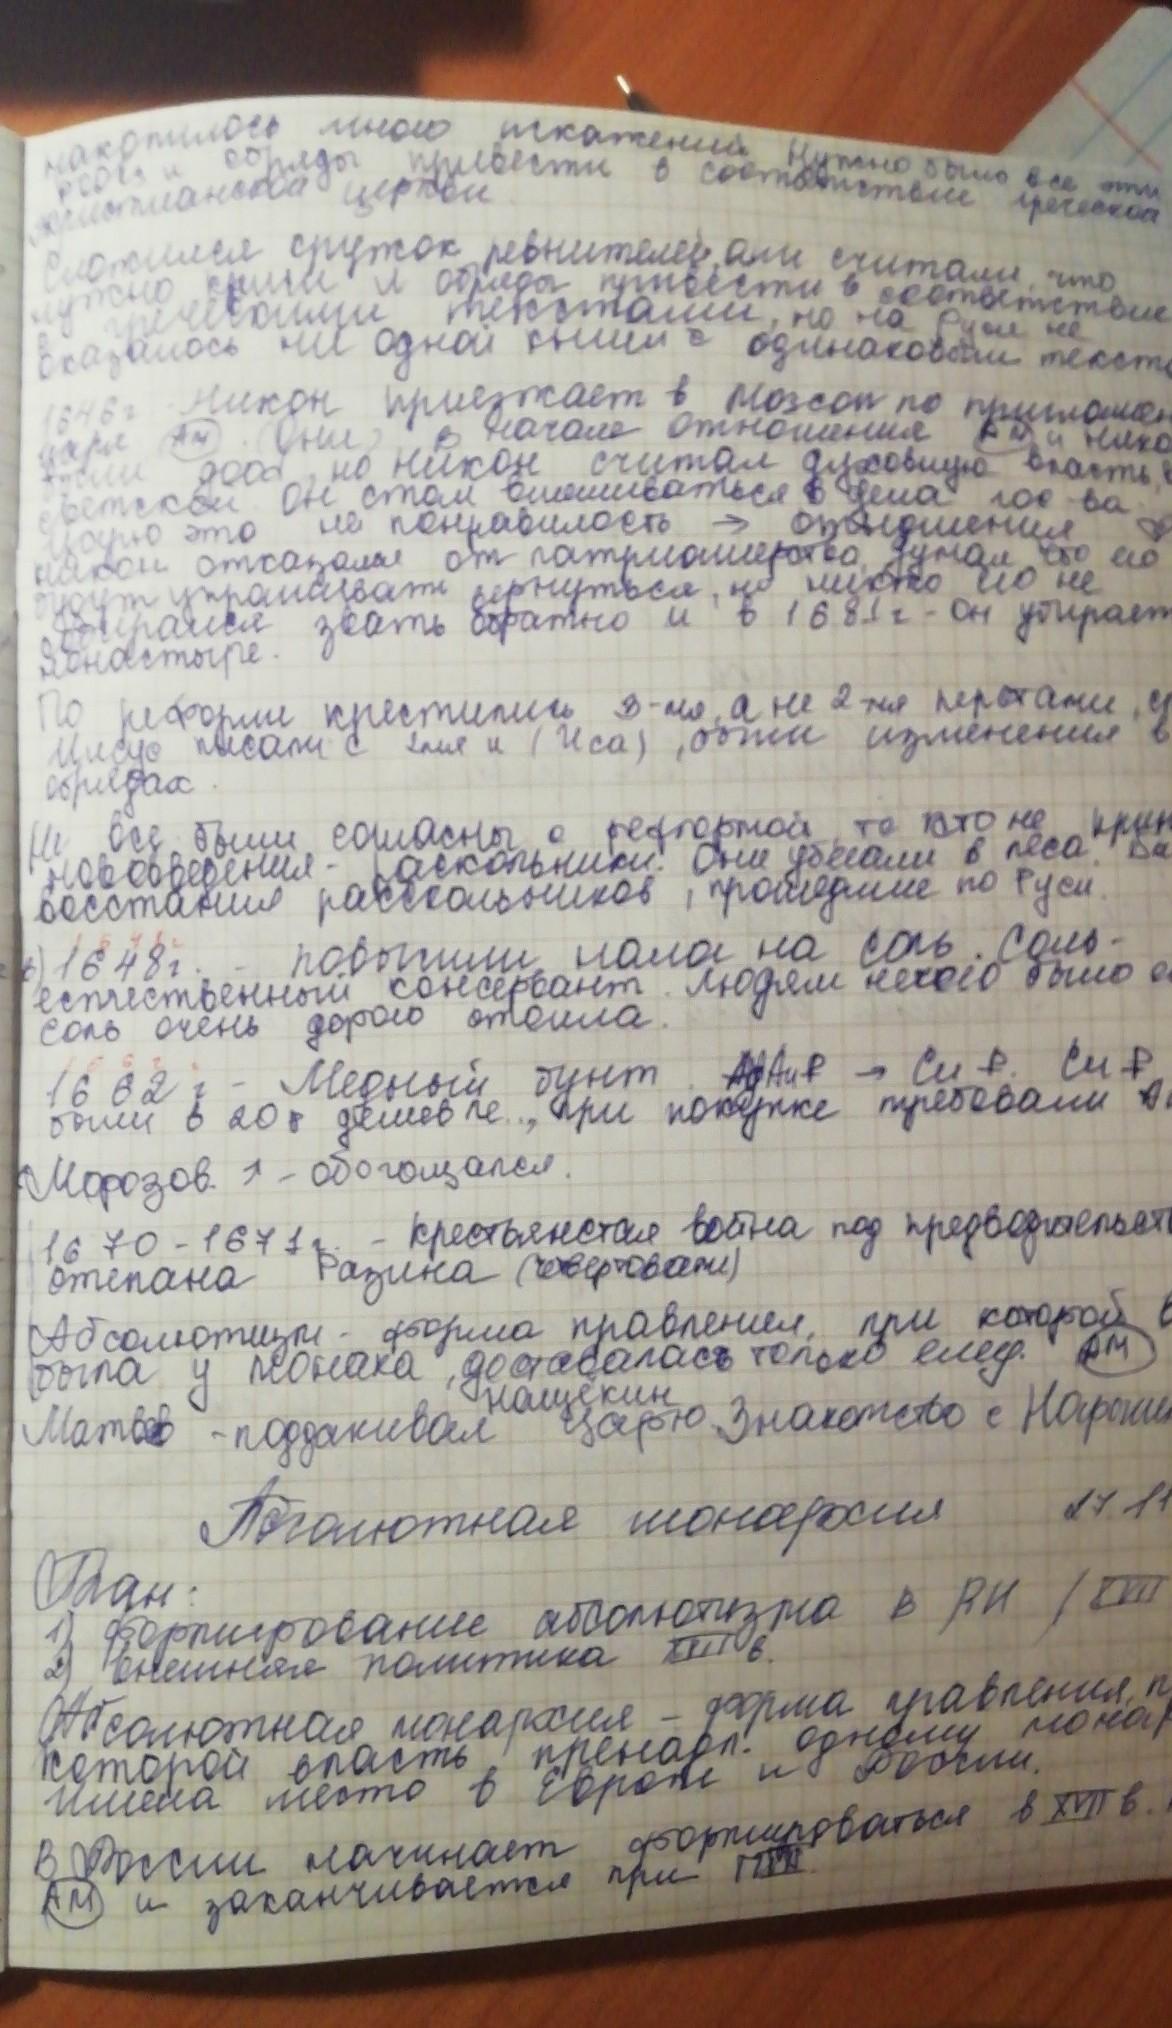 накопилось много искажений Нужно было все эти
обряды привести в соответствие греческой
християнской церкви
Сложился кружок ревнителей, они считали, что
нужно книги и обряды привести в соответствие
с греческими текстами, но на Руси не
оказалось ни одной книги с одинаковым текст
1646г - Никон приезжает в Москву по приглашен
царя АМ. Они в начале отношения АМ и Нико
были доб, но Никон считал духовную власть
светской. Он стал вмешиваться в дела гос-ва.
Царю это не понравилость → отношения
Никон отказался от патриаршерства, думал что его
будут упрашивать вернуться, но никто его не
собирался звать обратно и в 1681г - он убирает
монастыре.
По реформе крестились 3-мя, а не 2-мя перстами,
Иисус писали с 2мя и (Иса), были изменения в
обрядах.
Не все были согласны с реформой, то кто не прин
нововведения - раскольники. Они убегали в леса.
восстания расскольников, прошедшие по Руси.
1648г. - повысили налог на соль. Соль-
естественный консервант. Людям нечего было
соль очень дорого стоила.
1662 г - Медный бунт. → Cu ₽. Cu ₽
были в 20 дешевле., при покупке требовали
Морозов ↑ - обогощался.
1670 - 1671г. - Крестьянстая война под предводительств
степана Разина (четвертовали)
Абсолютизм - форма правления, при которой в
была у монаха, доставалась только след. АМ
Нащекин
Матвеев - поддакивал царю. Знакомство с Нарышк
Абсолютная монархия 27.11
План:
1) Формирование абсолютизма в РИ / XVII
2) Внешняя политика XVII в.
Абсолютная монархия - форма правления, п
которой власть пренадл. одному монар
Имела место в Европе и России.
В России начинает формироваться в XVII в.
АМ и заканчивается при ПI